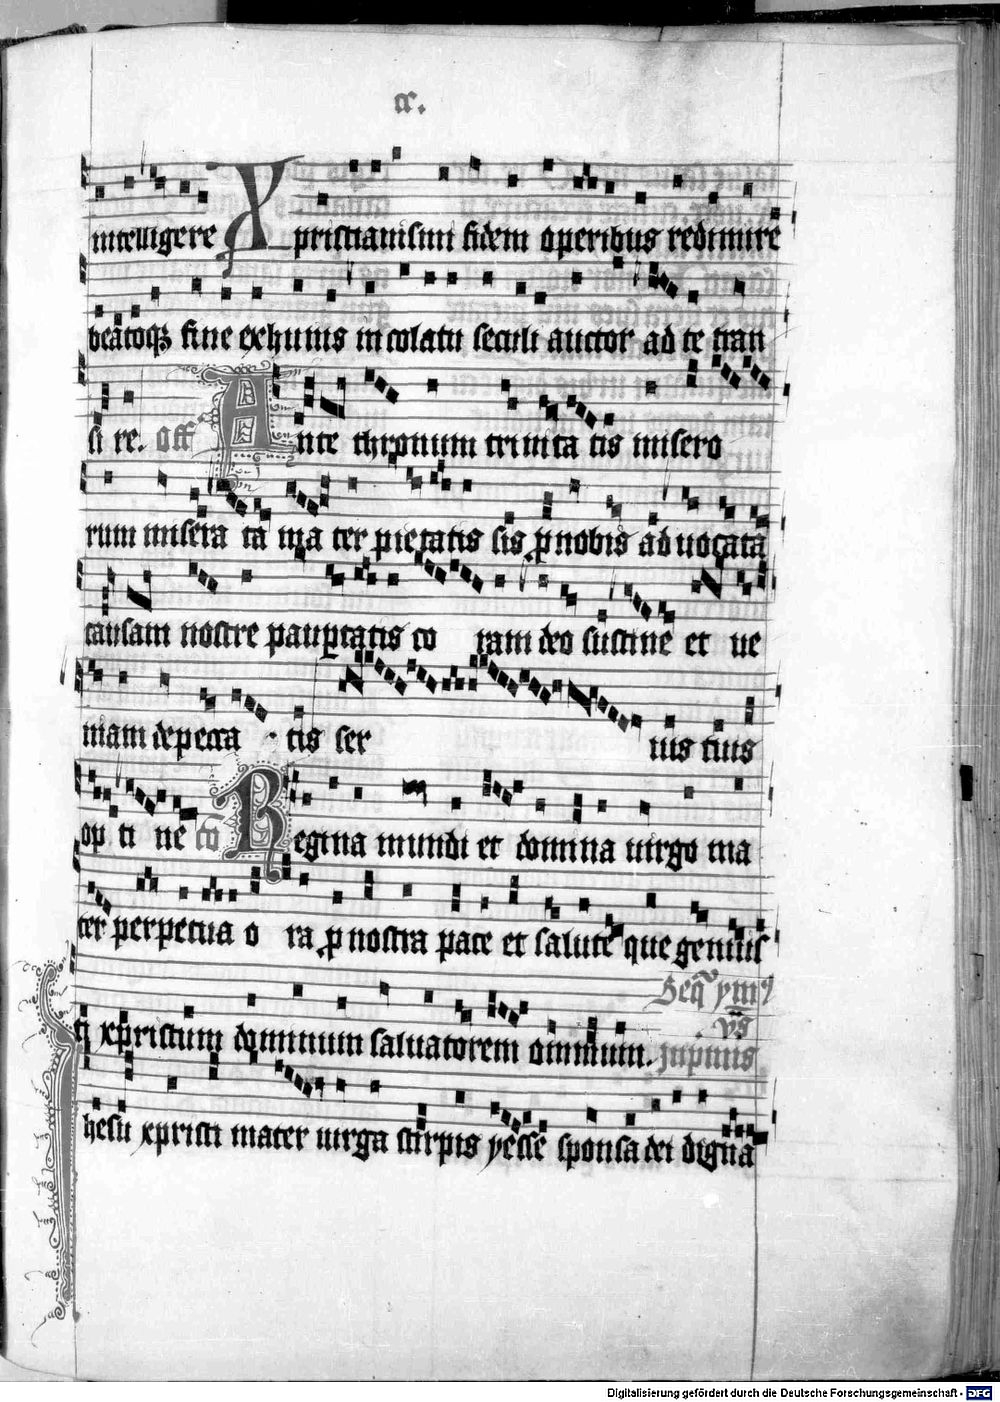 cc.
intelligere Xpristianisim fidem operibus redimire
beatoqꝫ fine exhuius in colatu seculi auctor ad te tran
si re. off Ante thronum trinita tis misero
rum misera ta ma ter pietatis sis ꝓ nobis ad uocata
causam nostre pauꝑtatis co ram deo sustine et ue
niam de pecca tis ser uis tuis
op ti ne cō Regina mundi et domina uirgo ma
ter perpetua o ra ꝓ nostra pace et salute que genuis
ti xpristum dominum saluatorem omnium.
Ihesu xpristi mater uirga stirpis yesse sponsa dei digna
Digitalisierung gefördert durch die Deutsche Forschungsgemeinschaft - DFG